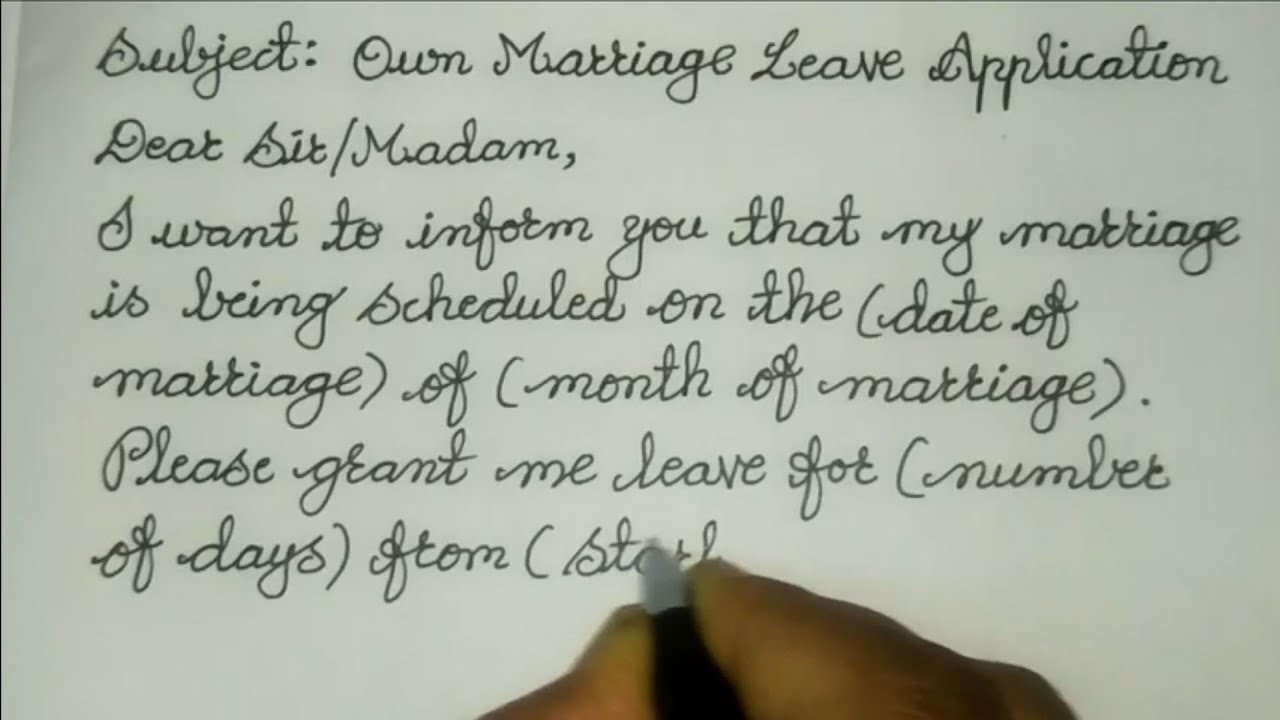 Subject: Own Marriage Leave Application
Dear Sir/Madam,
I want to inform you that my marriage
is being scheduled on the (date of
marriage) of (month of marriage).
Please grant me leave for (number
of days) from (